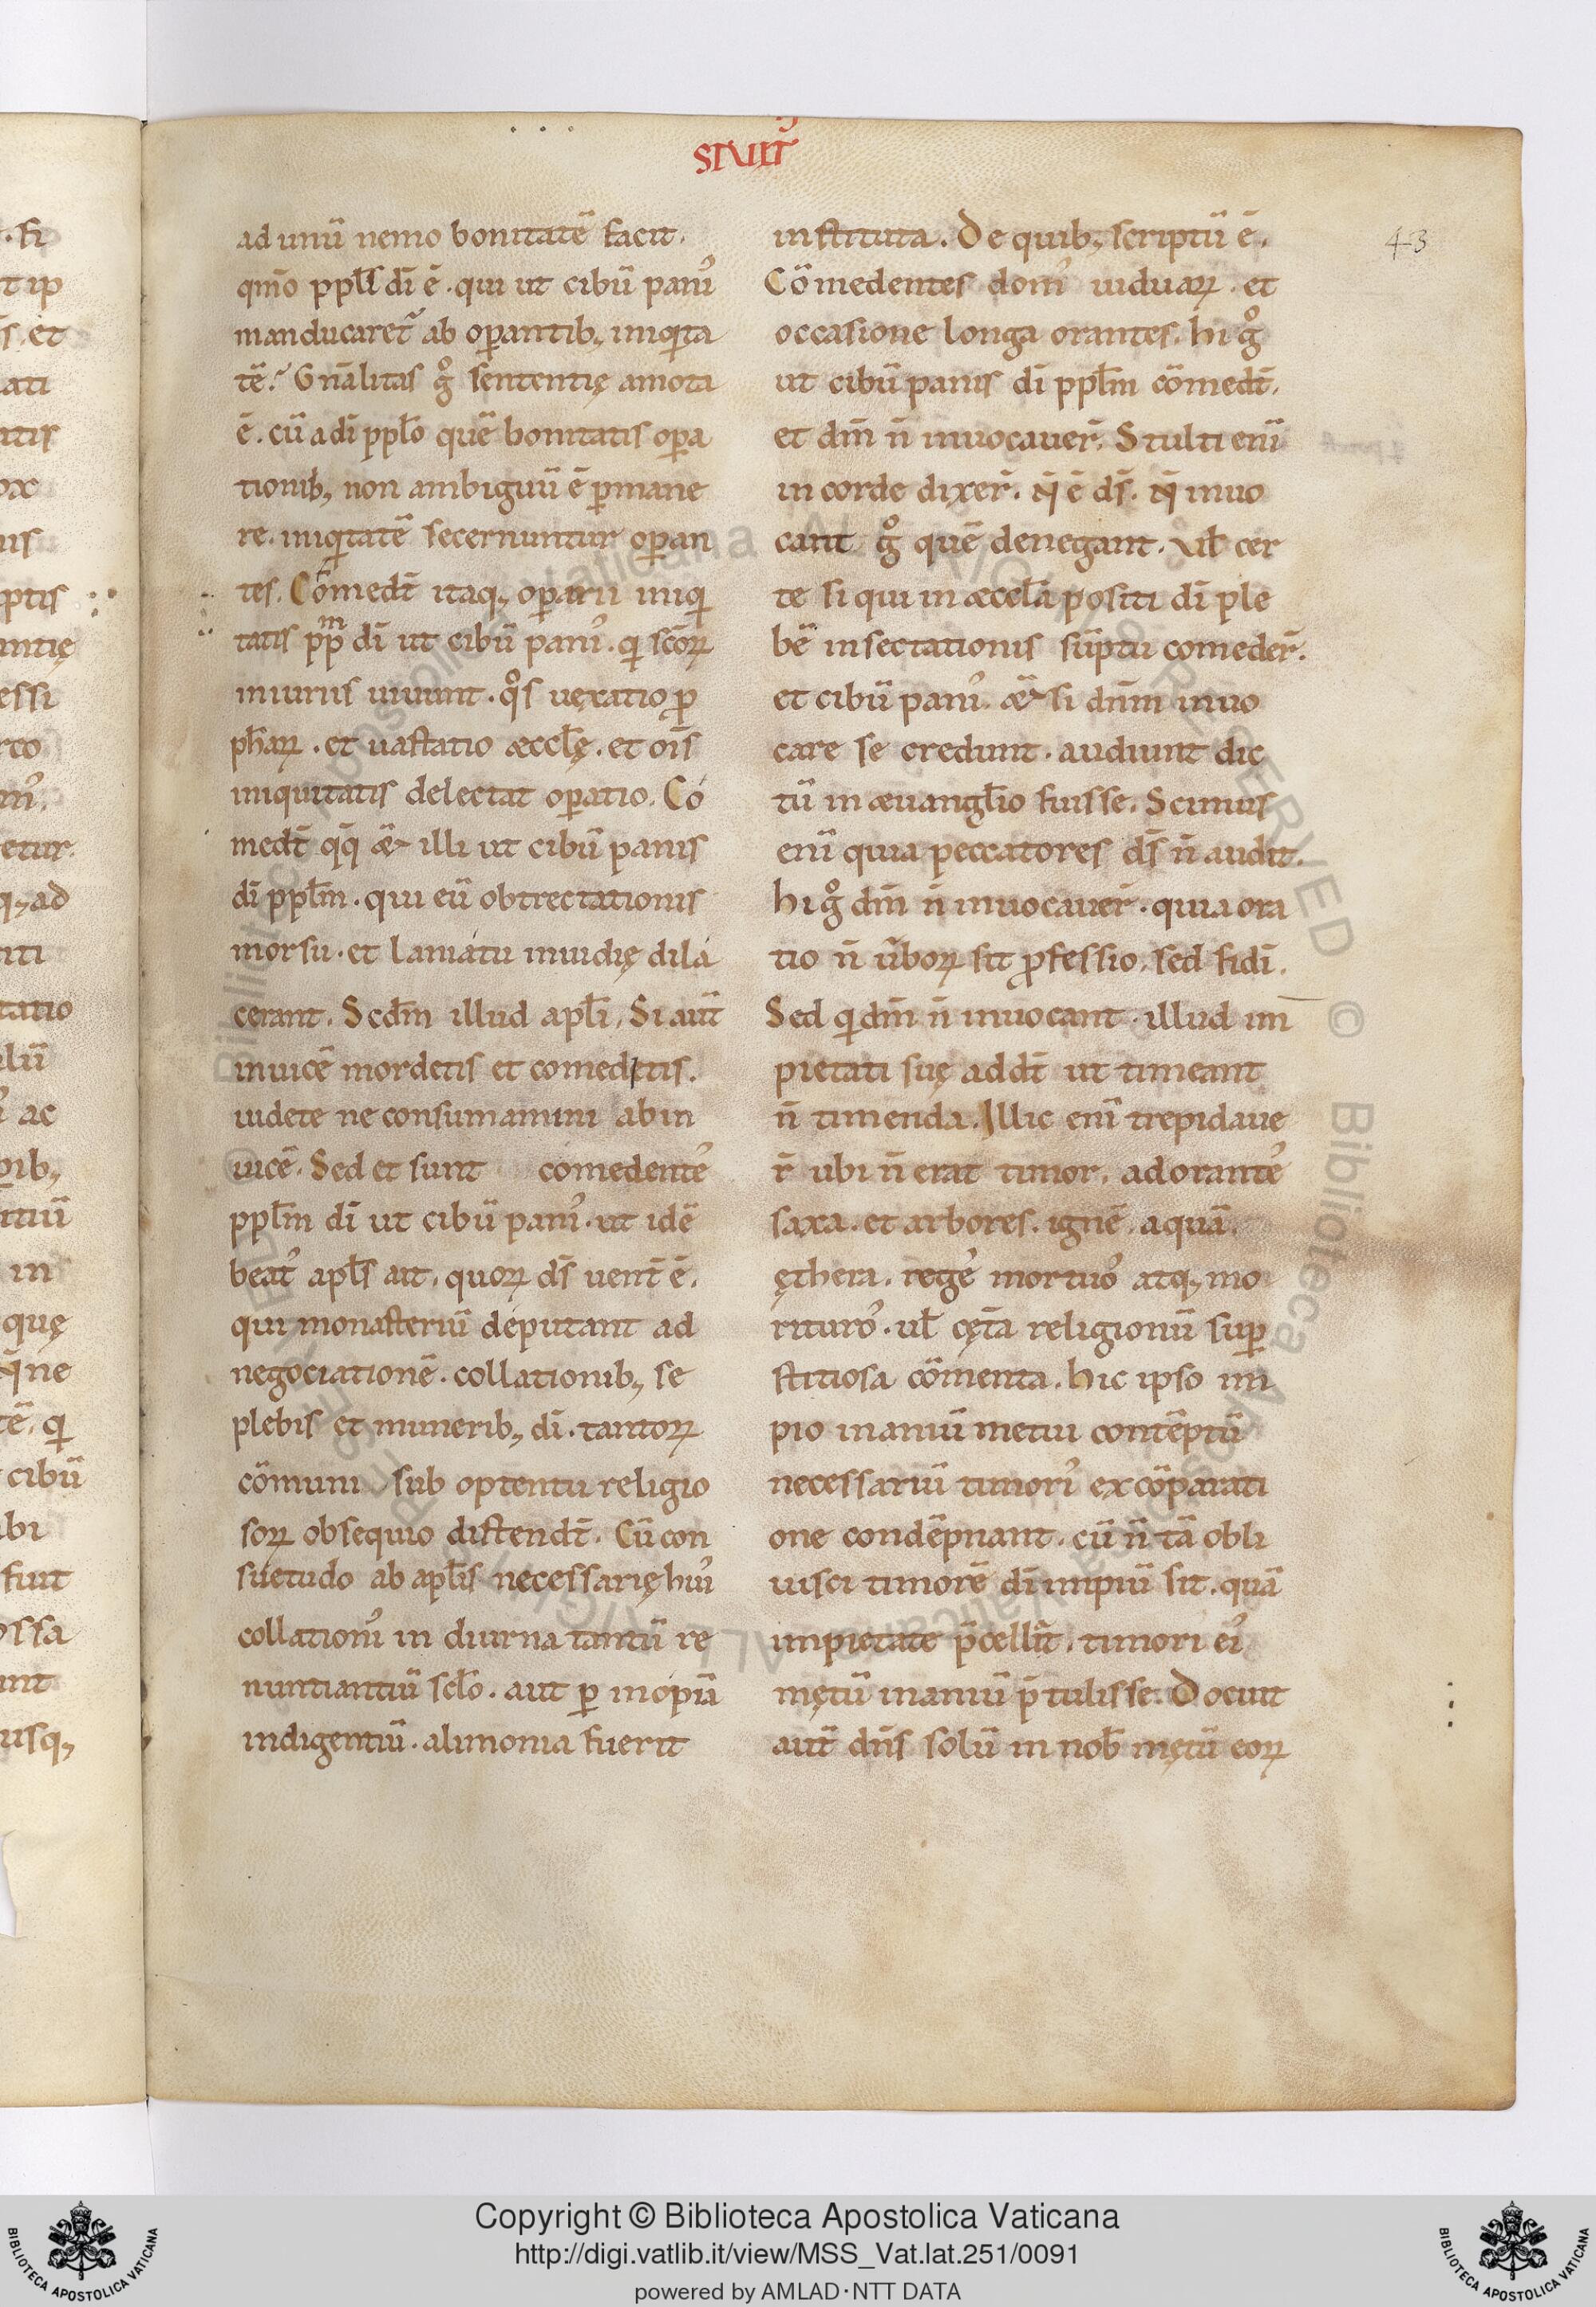 ad unū nemo bonitatē facit.
qm̄o ppl̄s dī ē. qui ut cibū panꝰ
manducaret᷑ ab oꝑantib; iniqͥta
tē? Gnālitas gͦ sententię amota
ē. cū a dī ppl̄o quē bonitatis oꝑa
tionib; non ambiguū ē ꝑmane
re. iniqͥtatē secernuntur oꝑan
tes. Cōmedt̄ itaq; oꝑarii iniqͥ
tatis pp̄m dī ut cibū panꝰ. qͥ sc̄oꝝ
iniuriis uiuunt. qͦs uęxatio ꝓ
ph̄aꝝ. et uastatio æccl̄ę. et oīs
iniquitatis delectat oꝑatio. Co
medt̄ qq̄ & illi ut cibū panis
dī ppl̄m. qui eū obtrectationis
morsu. et laniatu inuidię dila
cerant. Scd̄m illud apl̄i. Si aut̄
inuicē mordetis et comeditis.
uidete ne consumamini ab in
uicē. Sed et sunt comedentꝰ
ppl̄m dī ut cibū panꝰ. ut idē
beatꝰ apl̄s ait. quoꝝ ds̄ uent̄ ē.
qui monasteriū deputant ad
negociationē. collationib; se
plebis et munerib; dī. tantoꝝ
cōmuni sub optentu religio
soꝝ obsequio distendt̄. Cū con
suetudo ab apl̄is necessarię huꝰ
collationꝰ in diurna tantū re
nuntiantiū scl̄o. aut ꝑ inopiā
indigentiū. alimonia fuerit
instituta. De quib; scriptū ē.
Cōmedentes domꝰ uiduaꝝ. et
occasione longa orantes. hi gͦ
ut cibū panis dī ppl̄m cōmedt̄.
et dm̄ n̄ inuocauer̄. Stulti enī
in corde dixer̄. N̄ ē ds̄. N̄ inuo
cant gͦ quē denegant. Vl̄ cer
te si qui in æccl̄a positi dī ple
bē insectationis sūptu comeder̄.
et cibū panꝰ. & si dn̄m inuo
care se credunt. audiunt dic
tū in æuangl̄io fuisse. Scimus
enī quia peccatores ds̄ n̄ audit.
hi gͦ dm̄ n̄ inuocauer̄. quia ora
tio n̄ ūboꝝ sit ꝓfessio. sed fidī.
Sed qͥ dm̄ n̄ inuocant. illud im
pietati suę addt̄ ut timeant
n̄ timenda. Illic enī trepidaue
r̄ ubi n̄ erat timor. adorantꝰ
saxa. et arbores. ignē. aquā.
ęthera. regꝰ mortuoꝰ atq; mo
rituroꝰ. ul̄ cęt̄a religionū suꝑ
stitiosa cōmenta. hic ipso im
pio inaniū metu contēptū
necessariū timorꝰ ex cōparati
one condēpnant. cū n̄ tā obli
uisci timorē dī impiū sit. quā
impietate p̄cellit̄. timori eiꝰ
mętū inaniū p̄tulisse. Docuit
aut̄ dn̄s solū in nob̄ mętū eoꝝ
43
Copyright © Biblioteca Apostolica Vaticana
http://digi.vatlib.it/view/MSS_Vat.lat.251/0091
powered by AMLAD·NTT DATA